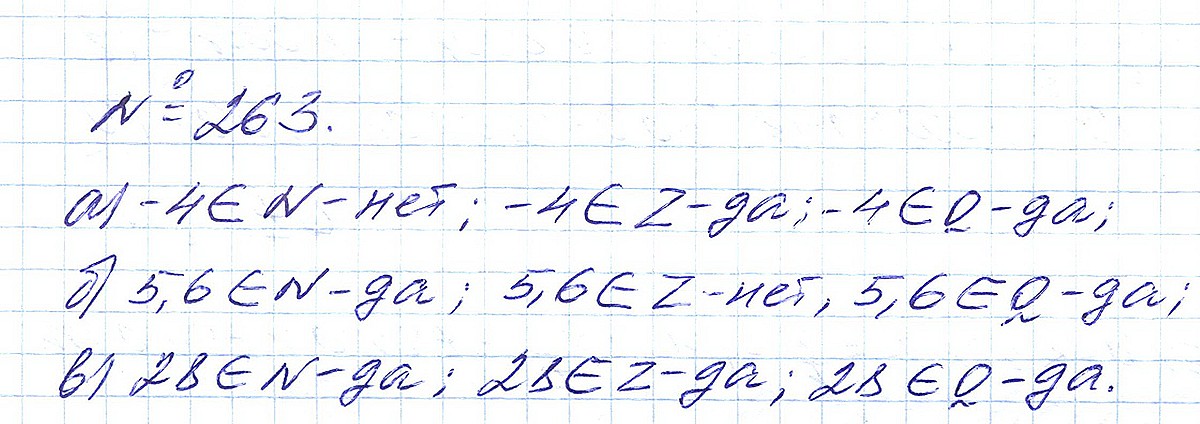 № 263.
а) -4 ∈ N - нет; -4 ∈ Z - да; -4 ∈ Q - да;
б) 5,6 ∈ N - да; 5,6 ∈ Z - нет, 5,6 ∈ Q - да;
в) 28 ∈ N - да; 28 ∈ Z - да; 28 ∈ Q - да.